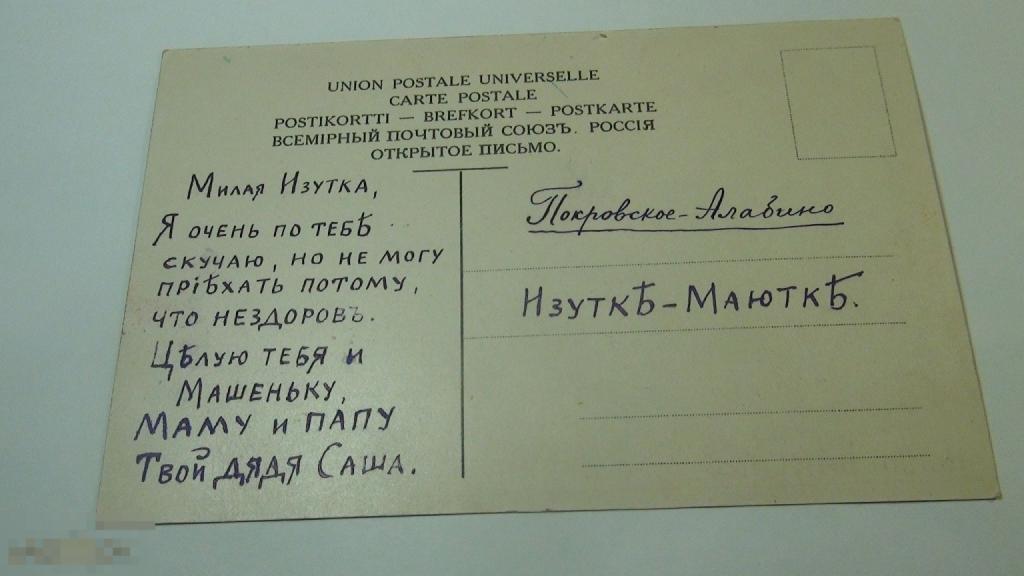 UNION POSTALE UNIVERSELLE
CARTE POSTALE
POSTIKORTTI — BREFKORT — POSTKARTE
ВСЕМІРНЫЙ ПОЧТОВЫЙ СОЮЗЪ. РОССІЯ
ОТКРЫТОЕ ПИСЬМО.
Милая Изутка,
Я ОЧЕНЬ ПО ТЕБѢ
СКУЧАЮ, НО НЕ МОГУ
ПРІѢХАТЬ ПОТОМУ,
ЧТО НЕЗДОРОВЪ.
ЦѢЛУЮ ТЕБЯ И
МАШЕНЬКУ,
МАМУ И ПАПУ
Твой ДЯДЯ САША.
Покровское-Алабино
ИЗУТКѢ-МАЮТКѢ.